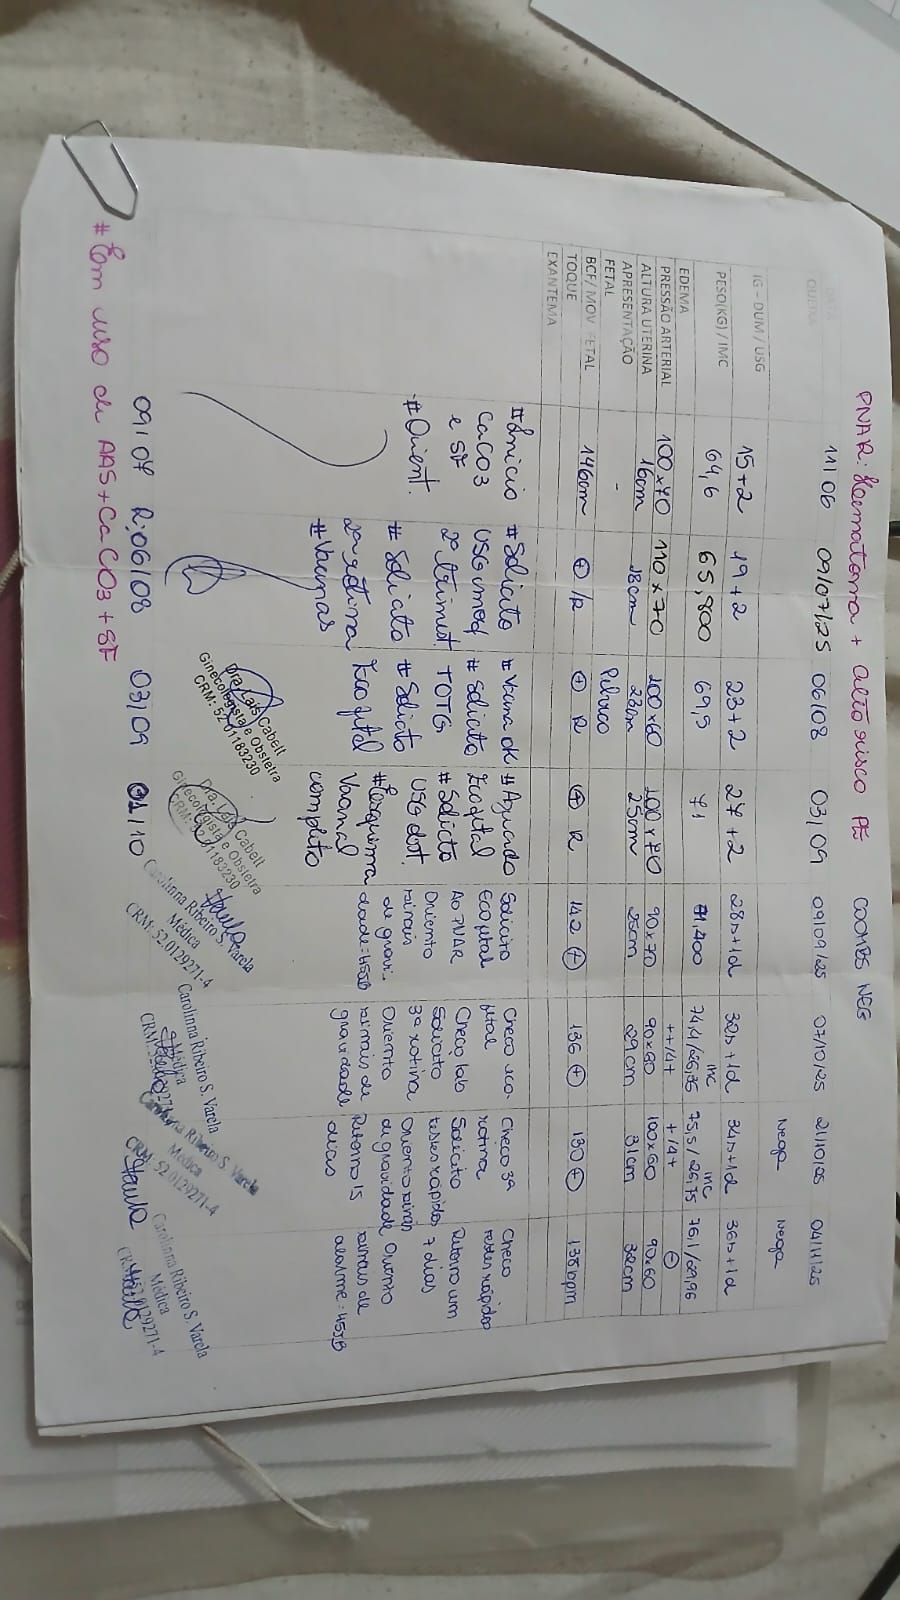 PNAR: Hematoma + alto risco PE COOMBS NEG
DATA 11/06 09/07/25 06/08 03/09 09/09/25 07/10/25 21/10/25 04/11/25
QUEIXA Nega Nega
IG - DUM / USG 15+2 19+2 23+2 27+2 28s+1d 32s+1d 34s+1d 36s+1d
PESO(KG) / IMC 64,6 65,800 69,9 71 71,400 74,1/26,35 IMC 75,5/26,75 IMC 76,1/
EDEMA ++/4+ +/4+ ⊖
PRESSÃO ARTERIAL 100x70 110x70 100x60 100x70 90x70 90x80 100x60 90x60
ALTURA UTERINA 16cm 18cm 23cm 25cm 26cm 29cm 31cm 32cm
APRESENTAÇÃO FETAL - Pélvico
BCF/ MOV FETAL 146bm ⊕/R ⊕ R ⊕ R 142 ⊕ 136 ⊕ 130 ⊕ 138bpm
TOQUE
EXANTEMA
#Início
CaCO3
e SF
#Orient.
#Solicito
USG morf
2º trimest.
#Solicito
2ª rotina
#Vacinas
#Vacina ok
#Solicito
TOTG
#Solicito
Eco fetal
#Aguardo
Eco fetal
#Solicito
USG obst.
#Esquema
Vacinal
completo
Solicito
Eco fetal
Ao PNAR
Oriento
sinais
de gravi-
dade
Checo eco.
fetal
Checo lab
Solicito
3ª rotina
Oriento
sinais de
gravidade
Checo 3ª
rotina
Solicito
testes rápidos
Oriento sinais
de gravidade
Retorno 15
dias
Checo
testes rápidos
Retorno em
7 dias
Oriento
sinais de
alarme
Dra. Laís Cabett
Ginecologista e Obstetra
CRM: 52.01183230
Dra. Laís Cabett
Ginecologista e Obstetra
CRM: 52.01183230
Carolinna Ribeiro S. Varela
Médica
CRM: 52.0129271-4
Carolinna Ribeiro S. Varela
Médica
Carolinna Ribeiro S. Varela
Médica
CRM: 52.0129271-4
Carolinna Ribeiro S. Varela
Médica
CRM: 52.0129271-4
09/07 R:06/08 03/09 01/10
#Em uso de AAS+CaCO3+SF